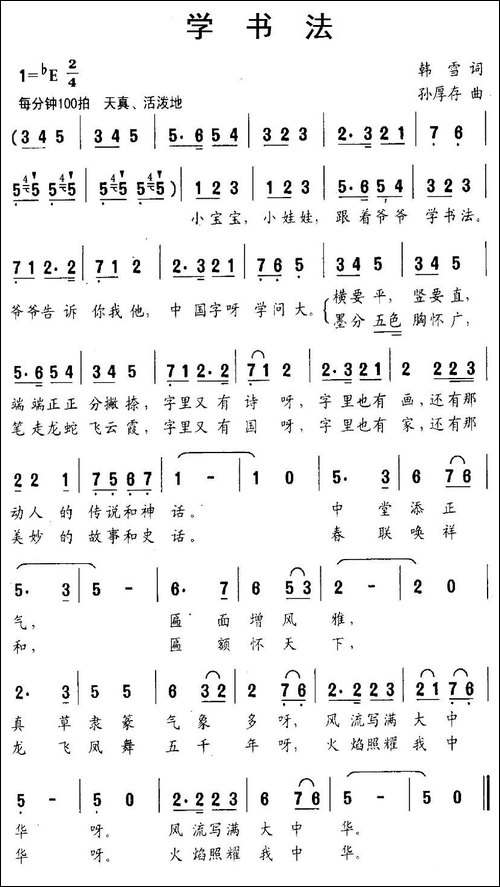 学 书 法
1=♭E 2/4
韩 雪 词
每分钟100拍 天真、活泼地
孙厚存 曲
( 3 4 5 | 3 4 5 | 5· 6 5 4 | 3 4 5 | 3 4 5 | 2· 3 2 1 | 7 6 |
5 5 5 5 | 5 5 5 ) | 1 2 3 | 1 2 3 | 5· 6 5 4 | 3 2 3 |
小宝宝, 小娃娃, 跟着爷爷 学书法。
7 1 2· 2 | 7 1 2 | 2· 3 2 1 | 7 6 5 | 3 4 5 | 3 4 5 |
爷爷告诉 你我他, 中国字呀 学问大。 横要平, 竖要直,
墨分五色 胸怀广,
5· 6 5 4 | 3 4 5 | 7 1 2· 2 | 7 1 2 | 2· 3 2 1 | 2 2 2 3 |
端端正正 分撇捺, 字里又有 诗呀, 字里也有 画, 还有那
笔走龙蛇 飞云霞, 字里又有 国呀, 字里也有 家, 还有那
2 2 1 | 7 5 6 7 | 1 - | 1 0 | 5· 3 | 6 7 6 |
动人的 传说和神 话。 中 堂添正
美妙的 故事和史 话。 春 联唤祥
5· 3 | 5 - | 6· 7 | 6 5 3 | 2 - | 2 0 |
气, 匾 面增风 雅,
和, 匾 额怀天 下,
2· 3 | 5 5 | 6 3 2 | 2 7 6 | 2· 2 2 3 | 2 1 7 6 |
真 草隶篆 气象 多呀, 风流写满 大中
龙 飞凤舞 五千 年呀, 火焰照耀 我中
5 - | 5 0 | 2· 2 2 3 | 6 7 6 | 5 - | 5 0 ‖
华 呀。 风流写满 大中 华。
华 呀。 火焰照耀 我中 华。